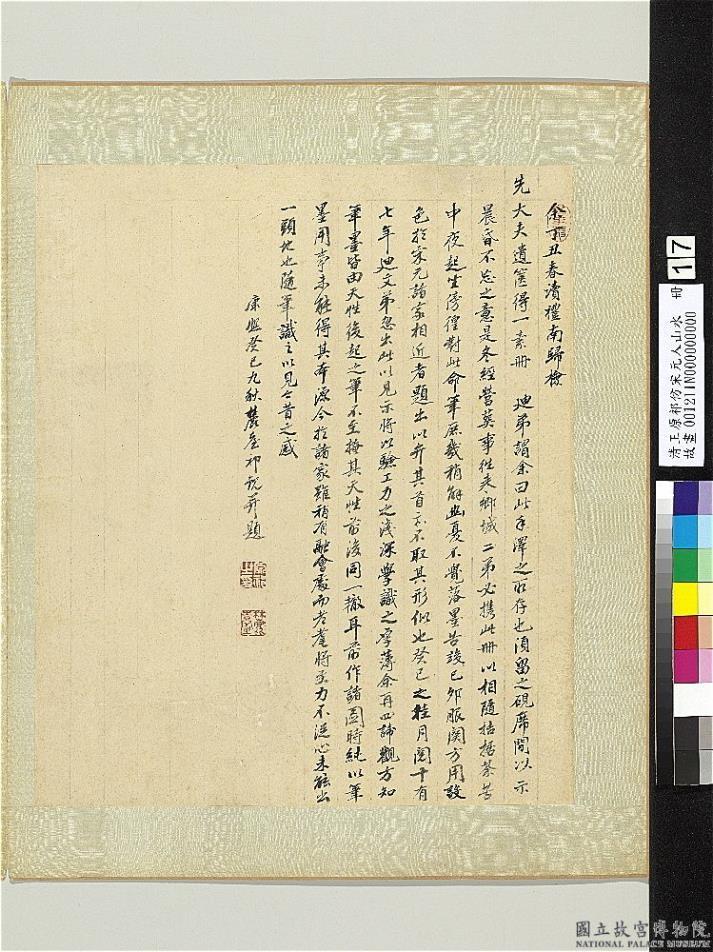 余丁丑春瀆櫂南歸檢
先大夫遺篋得一素冊　迪弟謂余曰此手澤之所存也須留之硯席間以示
晨昏不忘之意是冬經營葬事往來鄉城二弟必携此冊以相隨拮据荼苦
中夜起坐徬徨對此命筆庶幾稍解幽憂不覺落墨苦設己卯服闋方用設
色於宋元諸家相近者題出以弁其首示不取其形似也癸巳之桂月閱十有
七年迪文弟忽出此以見示將以驗工力之淺深學識之厚薄余再四諦觀方知
筆墨皆由天性後起之筆不至掩其天性前後同一轍耳前作諸圖時純以筆
墨用事未能得其本源今於諸家雖稍有融會處而老耄將至力不從心未能出
一頭地也隨筆識之以見今昔之感
康熙癸巳九秋麓臺祁說并題
17
清王原祁仿宋元人山水　冊
故畫001211N000000000
國立故宮博物院
NATIONAL PALACE MUSEUM